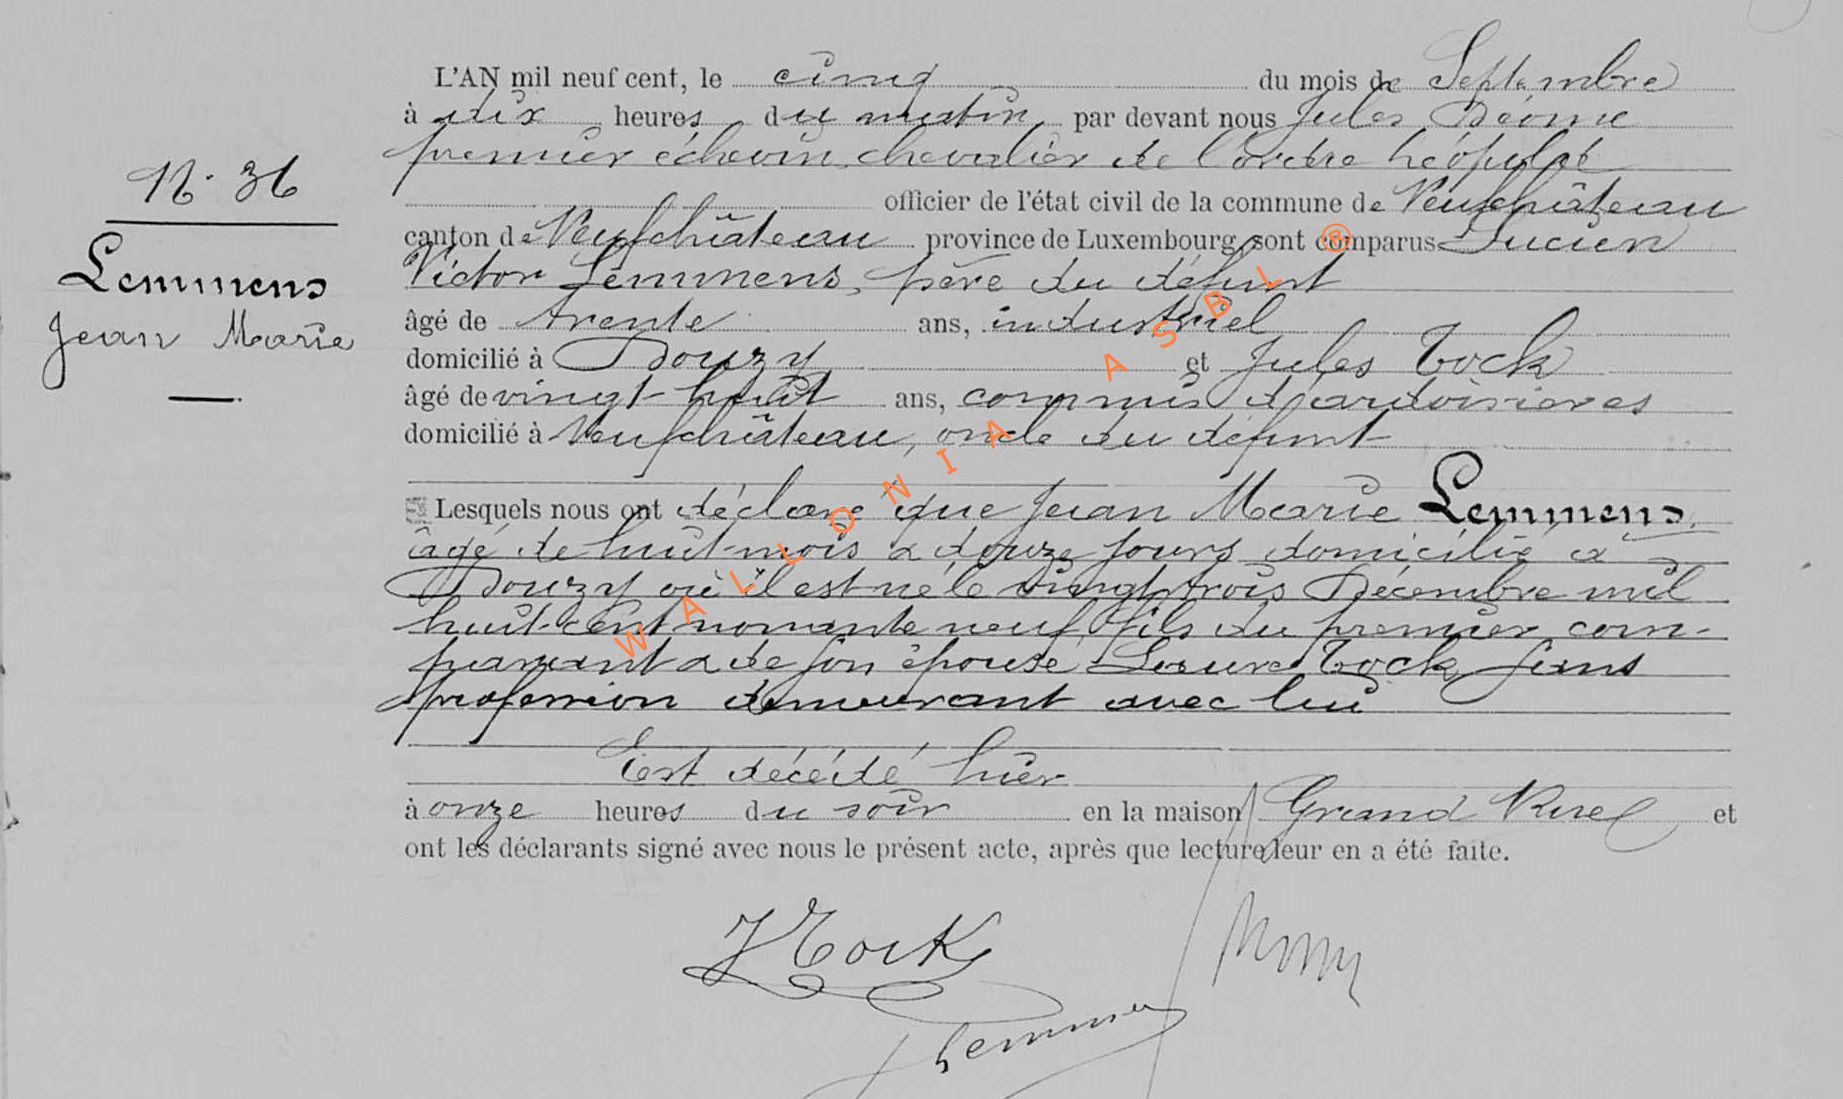 N. 36
Lemmens
Jean Marie
L'AN mil neuf cent, le cinq du mois de Septembre
à dix heures du matin par devant nous Jules
premier échevin, chevalier de l'ordre Léopold
officier de l'état civil de la commune de Neufchâteau
canton de Neufchâteau province de Luxembourg, sont comparus Lucien
Victor Lemmens, père du défunt
âgé de trente ans, industriel
domicilié à Douzy et Jules Tock
âgé de vingt-huit ans, commis d'ardoisières
domicilié à Neufchâteau, oncle du défunt
Lesquels nous ont déclaré que Jean Marie Lemmens,
âgé de huit mois & douze jours domicilié à
Douzy où il est né le vingt trois Décembre mil
huit-cent nonante neuf, fils du premier com-
parant & de son épouse Laure Tock sans
profession demeurant avec lui
Est décédé hier
à onze heures du soir en la maison Grand et
ont les déclarants signé avec nous le présent acte, après que lecture leur en a été faite.
J Tock
Lemmens
WALLONIA ASBL ®